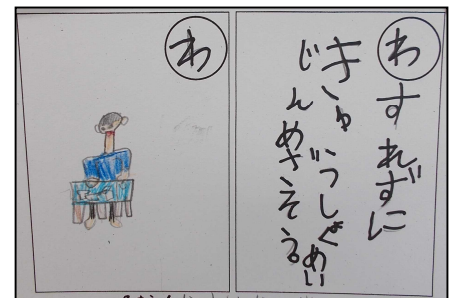 わすれずに
きゅうしょくめい
じんめざそう
わ